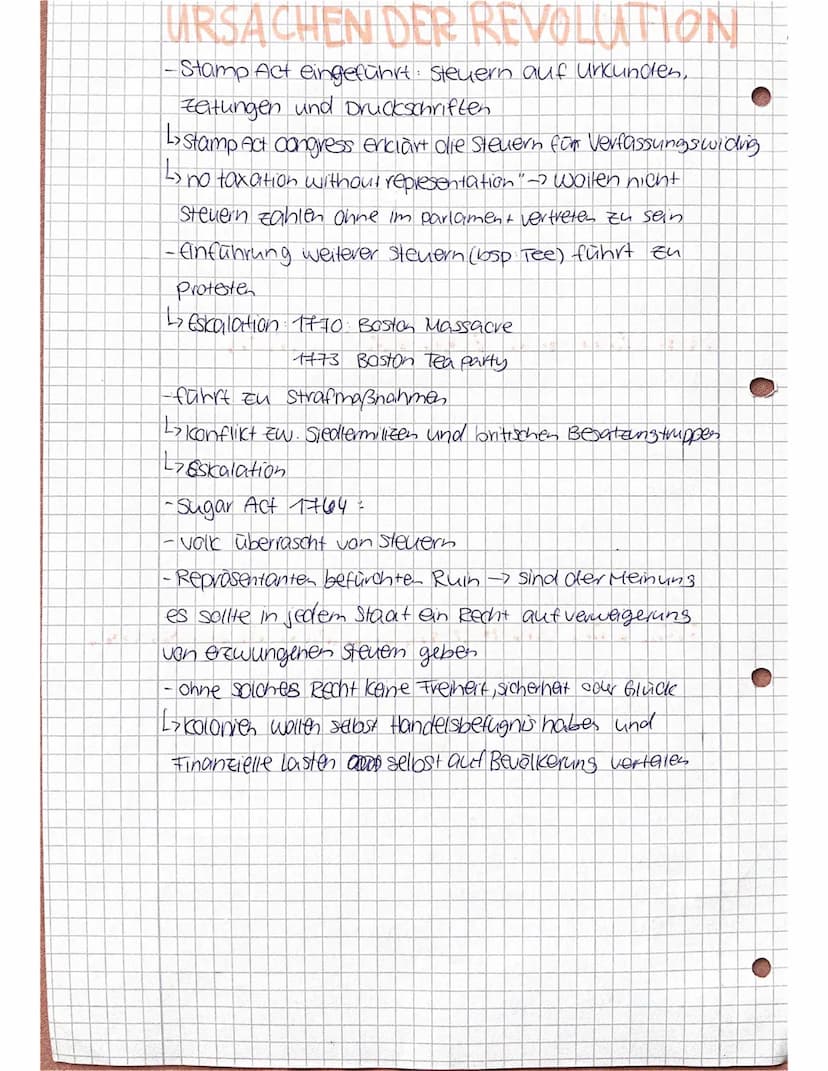 URSACHEN DER REVOLUTION
- Stamp Act eingeführt: Steuern auf Urkunden,
Zeitungen und Druckschriften
↳ Stamp Act Congress erklärt die Steuern für Verfassungswidrig
↳ no taxation without representation" → wollen nicht
Steuern zahlen ohne im Parlament vertreten zu sein
- Einführung weiterer Steuern (bsp Tee) führt zu
Protesten
↳ Eskalation: 1770: Boston Massacre
1773 Boston Tea party
- führt zu Strafmaßnahmen
↳ Konflikt zw. Siedlermilizen und britischen Besatzungstruppen
↳ Eskalation
- Sugar Act 1764:
- Volk überrascht von Steuern
- Repräsentanten befürchten Ruin → sind der Meinung
es sollte in jedem Staat ein Recht auf verweigerung
von erzwungenen Steuern geben
- ohne solches Recht keine Freiheit, sicherheit oder Glück
↳ Kolonien wollen selbst Handelsbefugnis haben und
Finanzielle Lasten selbst auf Bevölkerung verteilen